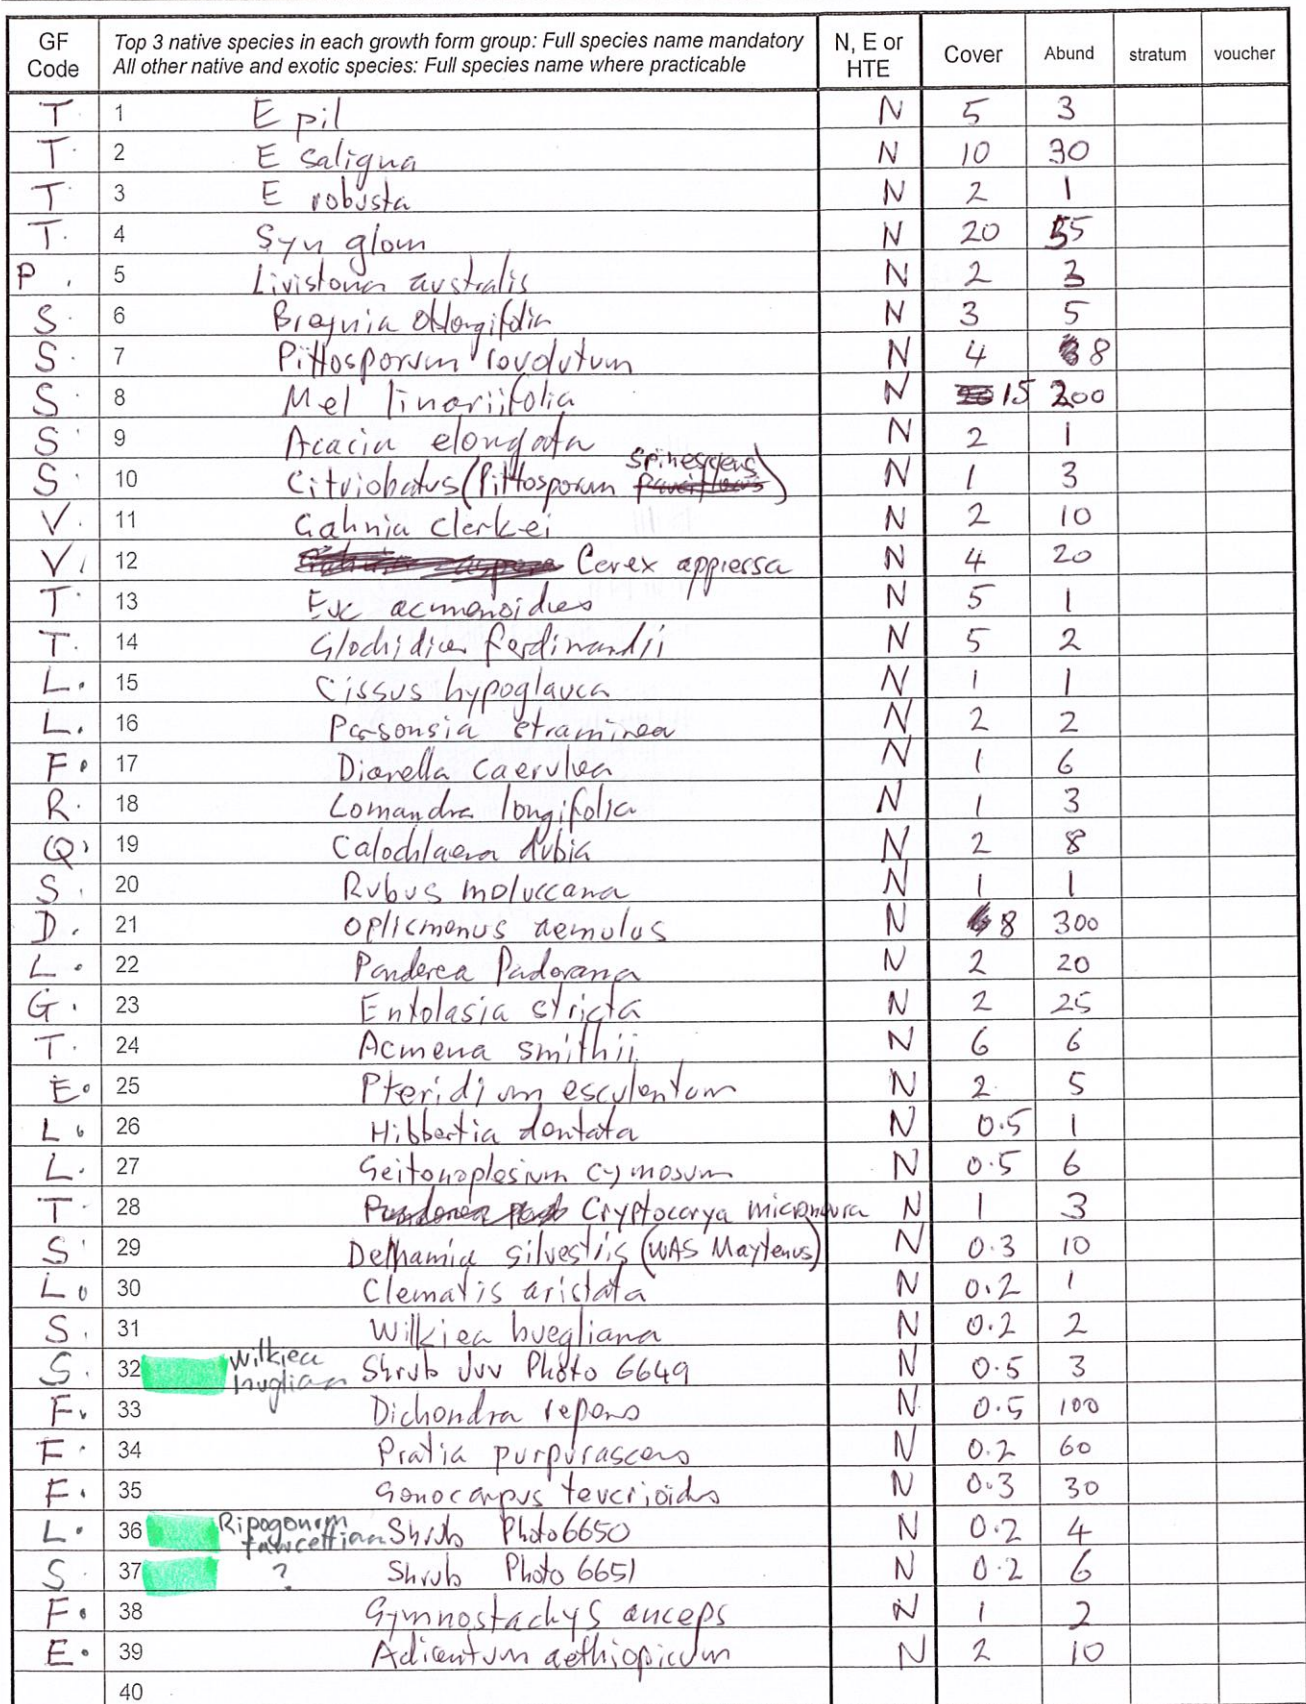 GF Code Top 3 native species in each growth form group: Full species name mandatory All other native and exotic species: Full species name where practicable N, E or HTE Cover Abund stratum voucher
T 1 E pil N 5 3
T 2 E saligna N 10 30
T 3 E robusta N 2 1
T 4 Syn glom N 20 55
P 5 Livistona australis N 2 3
S 6 Breynia oblongifolia N 3 5
S 7 Pittosporum rovolutum N 4 8
S 8 Mel linariifolia N 15 200
S 9 Acacia elongata N 2 1
S 10 Citriobatus (Pittosporum spinescens) N 1 3
V 11 Gahnia clarkei N 2 10
V 12 Carex appressa N 4 20
T 13 Euc acmenoides N 5 1
T 14 Glochidion ferdinandii N 5 2
L 15 Cissus hypoglauca N 1 1
L 16 Parsonsia straminea N 2 2
F 17 Dianella caerulea N 1 6
R 18 Lomandra longifolia N 1 3
Q 19 Calochlaena dubia N 2 8
S 20 Rubus moluccana N 1 1
D 21 Oplismenus aemulus N 8 300
L 22 Panderea Padorana N 2 20
G 23 Entolasia stricta N 2 25
T 24 Acmena smithii N 6 6
E 25 Pteridium esculentum N 2 5
L 26 Hibbertia dentata N 0.5 1
L 27 Geitonoplesium cymosum N 0.5 6
T 28 Cryptocarya microneura N 1 3
S 29 Denhamia silvestris (WAS Maytenus) N 0.3 10
L 30 Clematis aristata N 0.2 1
S 31 Wilkiea huegliana N 0.2 2
S 32 Wilkiea huglian Shrub Juv Photo 6649 N 0.5 3
F 33 Dichondra repens N 0.5 100
F 34 Pratia purpurascens N 0.2 60
F 35 Gonocarpus teucrioides N 0.3 30
L 36 Ripogonum fawcettian Shrub Photo 6650 N 0.2 4
S 37 ? Shrub Photo 6651 N 0.2 6
F 38 Gymnostachys anceps N 1 2
E 39 Adiantum aethiopicum N 2 10
40